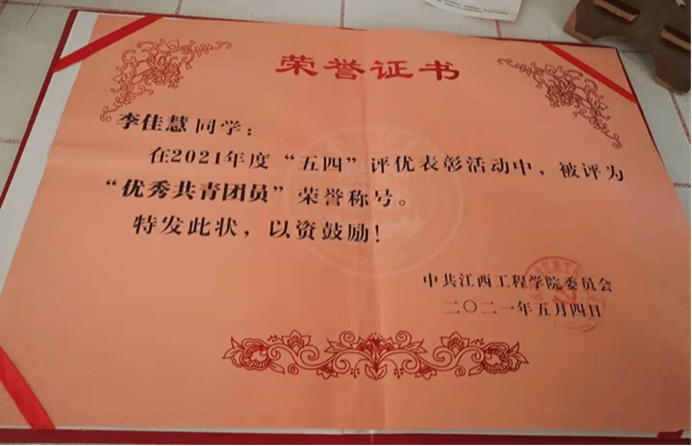 荣誉证书
李佳慧同学：
在2021年度“五四”评优表彰活动中，被评为
“优秀共青团员”荣誉称号。
特发此状，以资鼓励！
中共江西工程学院委员会
二〇二一年五月四日